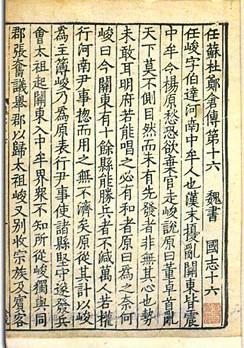 任蘇杜鄭倉傳第十六　魏書　國志十六
任峻字伯達河南中牟人也漢末擾亂關東皆震
中牟令楊原愁恐欲棄官走峻說原曰董卓首亂
天下莫不側目然而未有先發者非無其心也勢
未敢耳明府若能唱之必有和者原曰爲之奈何
峻曰今關東有十餘縣能勝兵者不減萬人若權
行河南尹事揔而用之無不濟矣原從其計以峻
爲主簿峻乃爲原表行尹事使諸縣堅守遂發兵
會太祖起關東入中牟界衆不知所從峻獨與同
郡張奮議舉郡以歸太祖峻又別收宗族及賓客